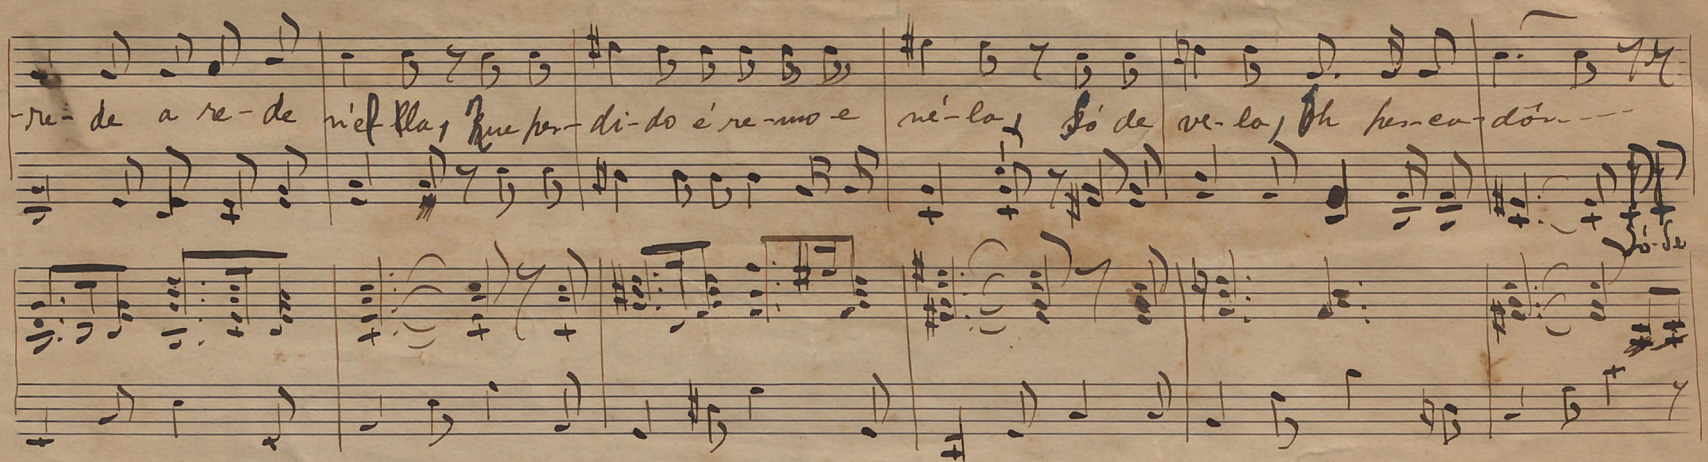 -re-de a re-de n'el-lla, Que per-di-do é re-mo e vé-la, Só de ve-la, Oh pes-ca-dôr----
Só-de